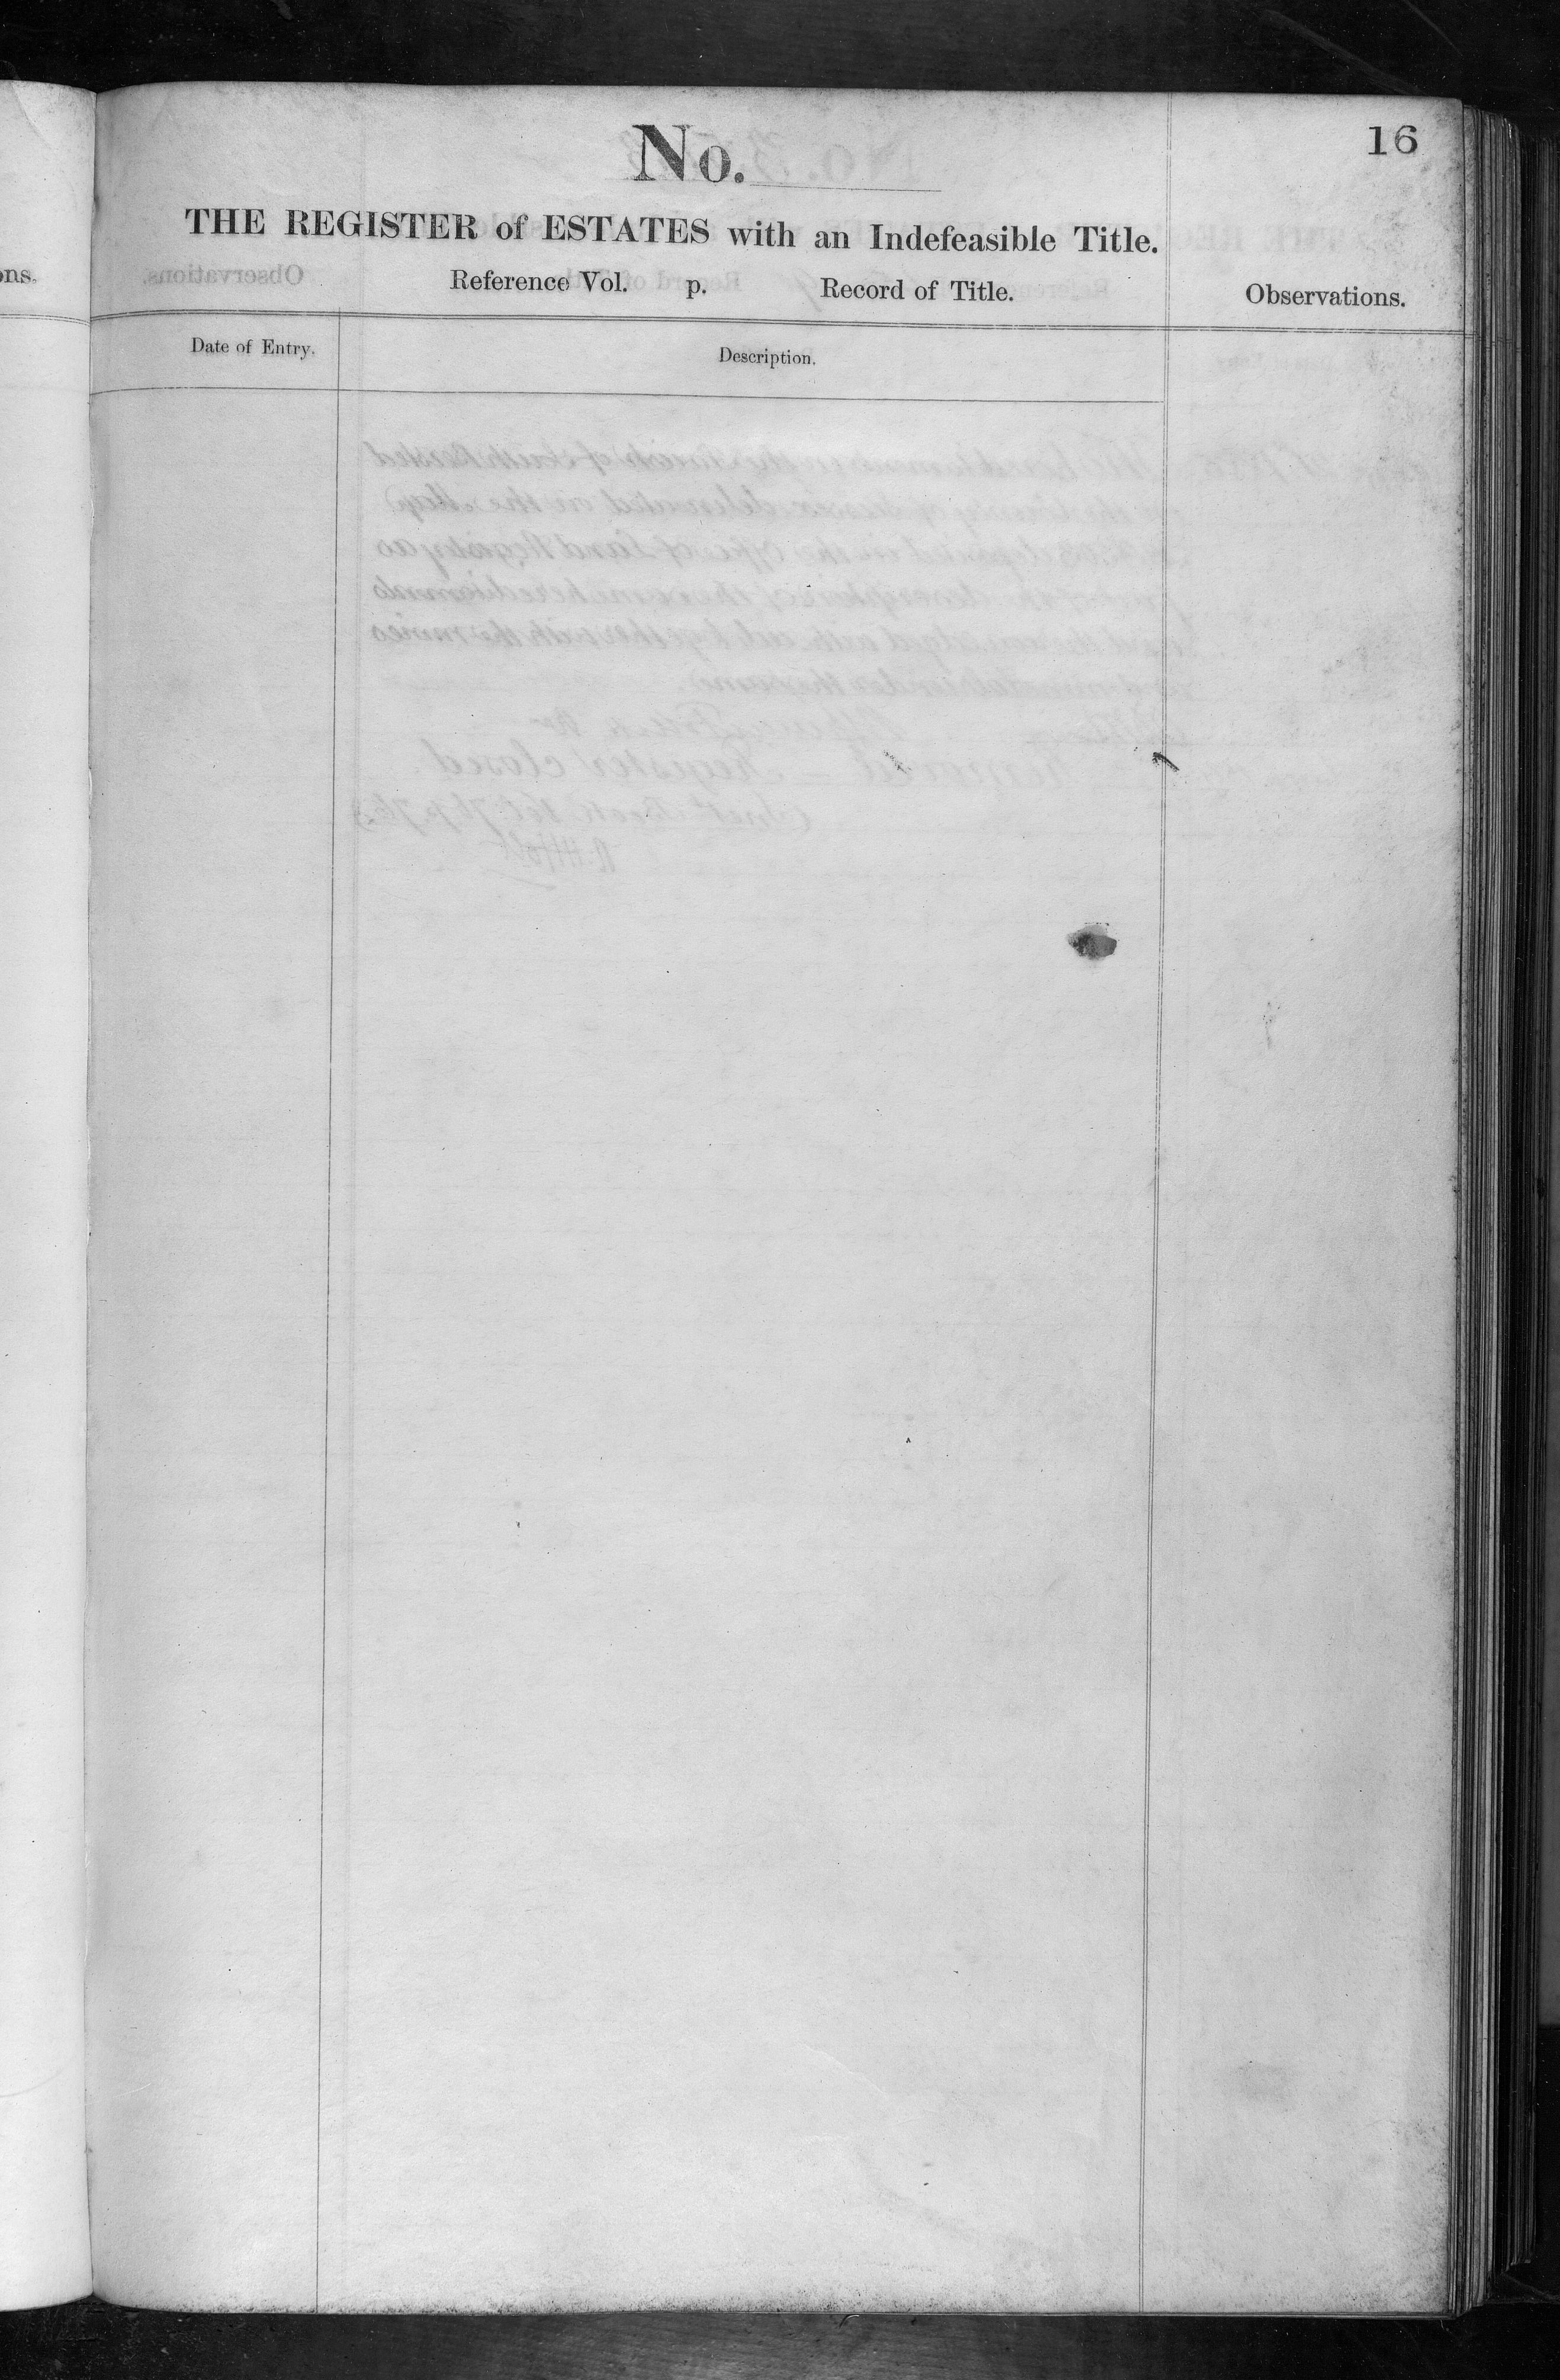 16
No.
THE REGISTER of ESTATES with an Indefeasible Title.
ons.
Reference Vol. p. Record of Title.
Observations.
Date of Entry.
Description.